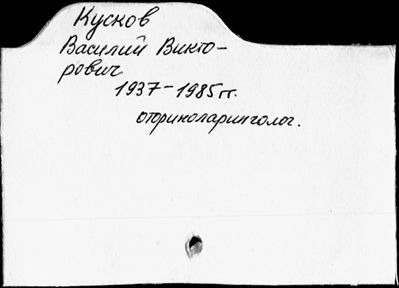 Кусков
Василий Викто-
рович
1937-1985 гг.
оториноларинголог.